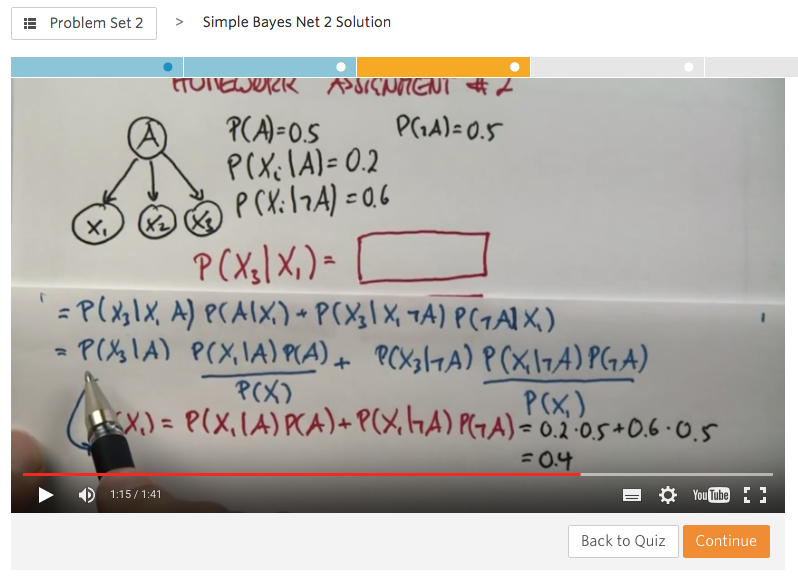 Problem Set 2 > Simple Bayes Net 2 Solution
HOMEWORK ASSIGNMENT #2
A
P(A)=0.5 P(¬A)=0.5
P(Xi|A)=0.2
P(Xi|¬A)=0.6
X1 X2 X3
P(X3|X1)=
= P(X3|X1 A) P(A|X1) + P(X3|X1 ¬A) P(¬A|X1)
= P(X3|A) P(X1|A)P(A) + P(X3|¬A) P(X1|¬A)P(¬A)
P(X) P(X1)
(X1) = P(X1|A) P(A) + P(X1|¬A) P(¬A) = 0.2·0.5+0.6·0.5
= 0.4
1:15 / 1:41 YouTube
Back to Quiz Continue